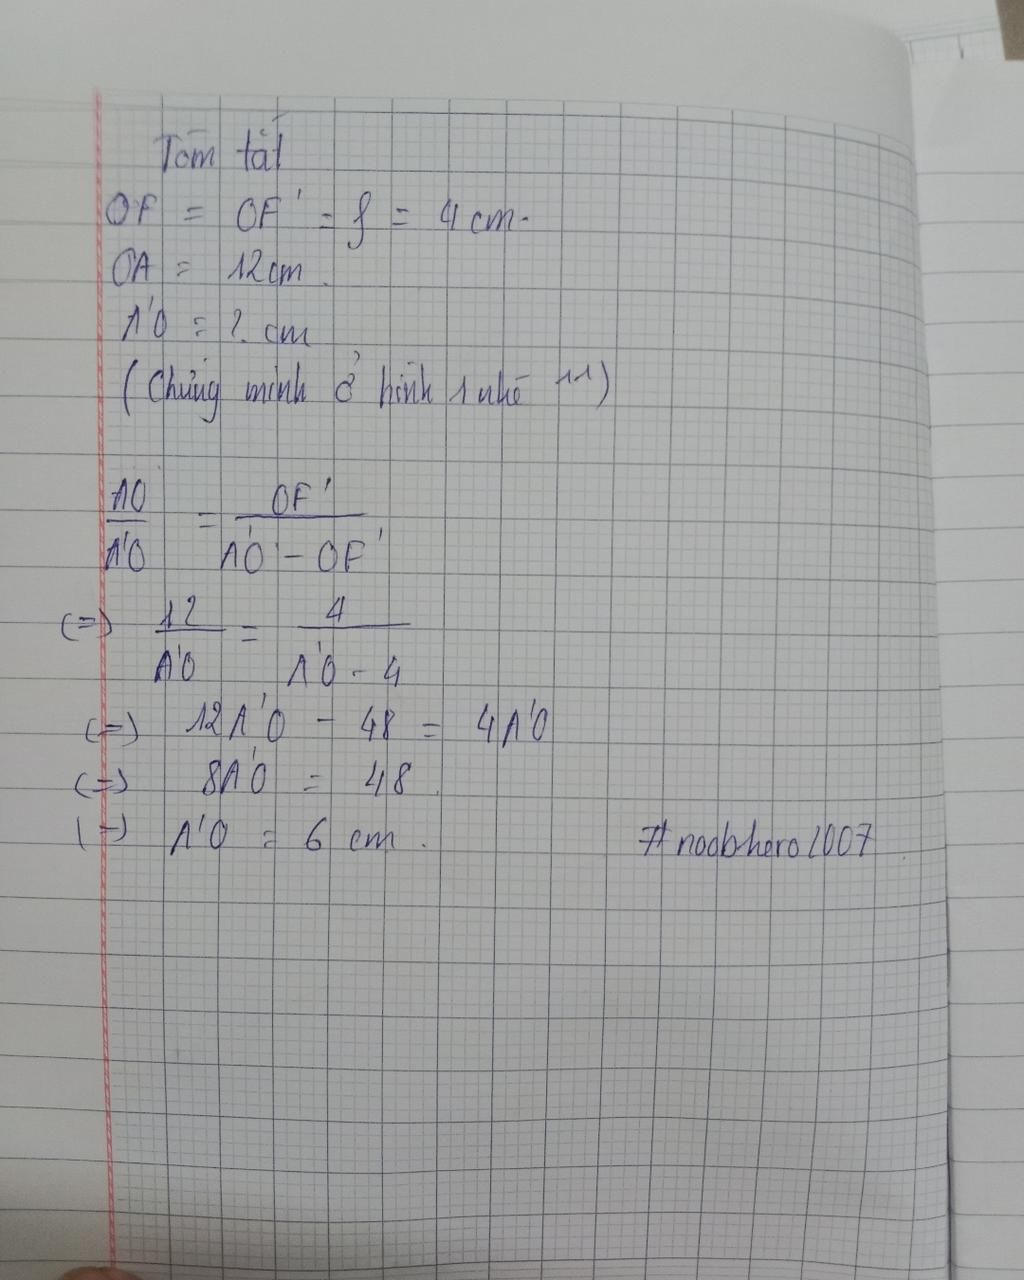 Tóm tắt
OF = OF' = f = 4 cm.
OA = 12 cm.
A'O = ? cm
(Chứng minh ở hình 1 nhé ^^)
AO / A'O = OF' / A'O - OF'
(=) 12 / A'O = 4 / A'O - 4
(=) 12A'O - 48 = 4A'O
(=) 8A'O = 48.
(=) A'O = 6 cm.
#noobhero1007